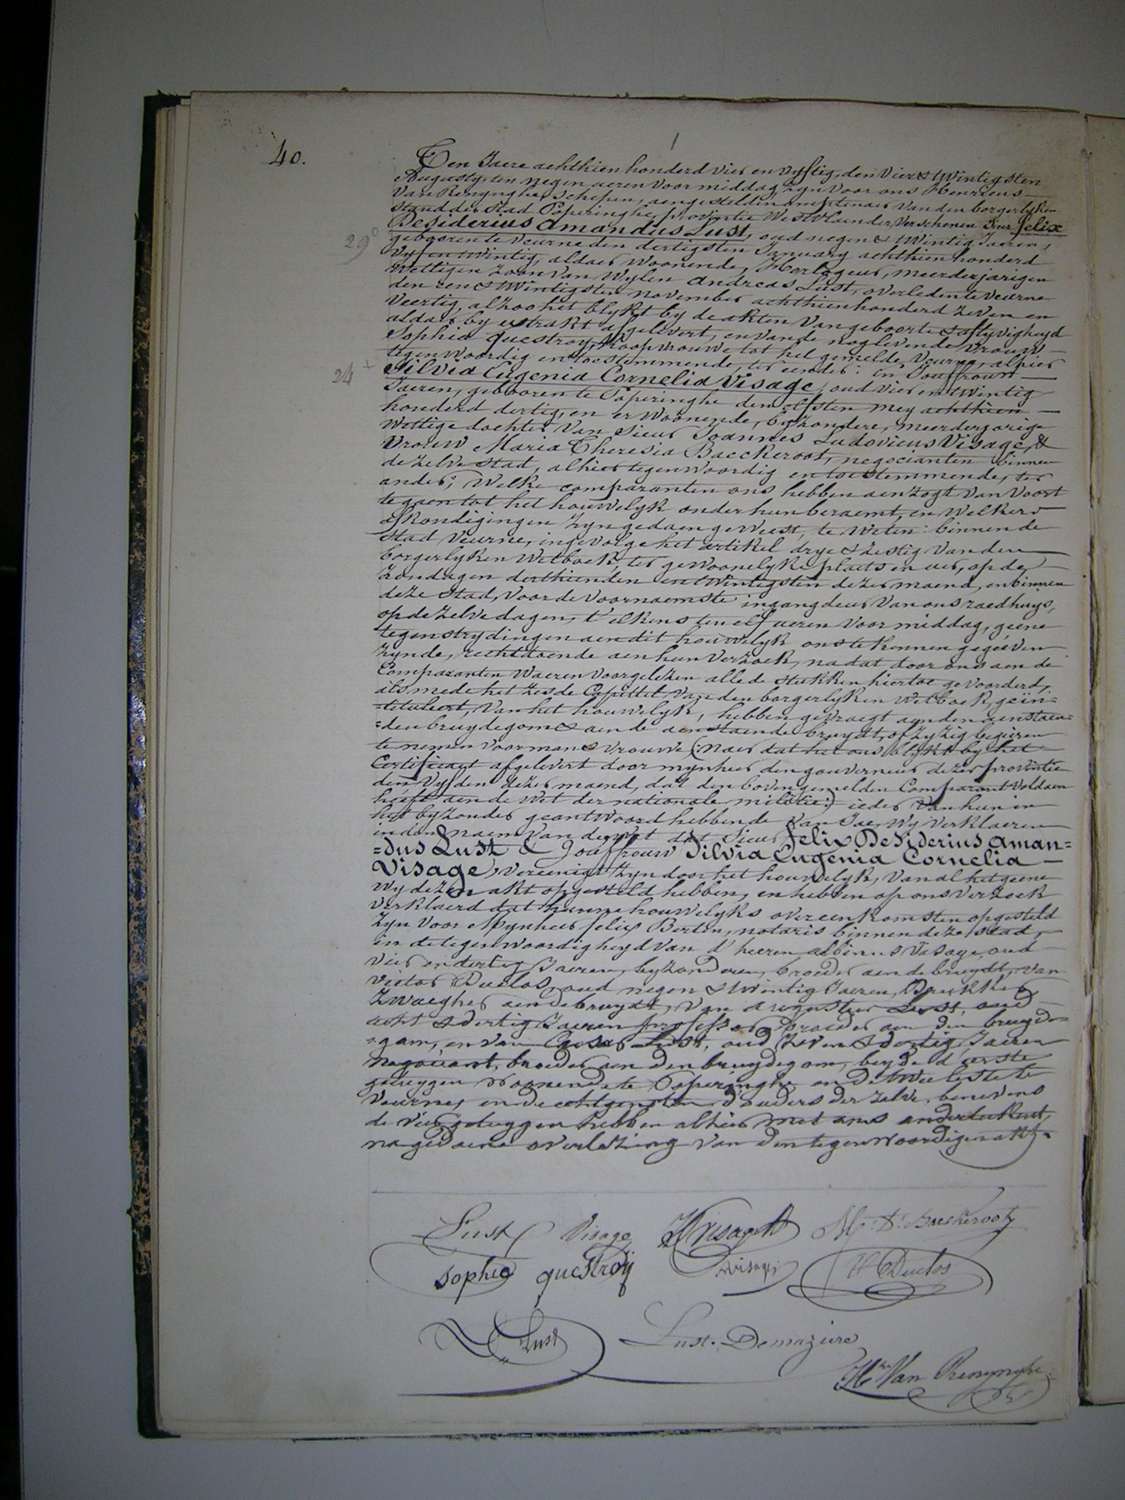 40.
Ten Jaere achthien honderd vier en vyftig, den Vier & Twintigsten
Augusty ten negen aeren voor middag zyn voor ons Henricus
Van Renynghe, Schepen, aengestelden amptenaer van den borgerlyken
stand der Stad Poperinghe, provintie West-Vlaender, Verschenen Sieur felix
29°
Desiderius Amandus Lust, oud negen & twintig Jaeren,
geboren te Veurne den dertigsten January achthien honderd
vyf en twintig, aldaer woonende, Horlogeur, meerderjarigen
wettigen zoon van wylen Andreas Lust, overleden te Veurne
den een & twintigsten November achthien honderd zeven en
Veertig, alzoo het blykt by de akten van geboorte & aflyvigheyd
aldaer by extrakt afgelevert, en van de nog levende Vrouw
Sophia Questroy, koopvrouwe tot het gemelde Veurne, alhier
tegenwoordig en toestemmende, ter eender: en Jouffrouw
24 +
Silvia Eugenia Cornelia Visage, oud vier en twintig
Jaeren, geboren te Poperinghe den elfsten mey achthien
honderd dertig, en er woonende, byzondere, meerderjarige
wettige dochter van Sieur Joannes Ludovicus Visage, &
Vrouw Maria Theresia Baeckeroot, negocianten binnen
de zelve stad, alhier tegenwoordig en toestemmende, ter
ander; Welke comparanten ons hebben aenzogt van voort
te gaen tot het houwelyk onder hun beraemt, en welkers
afkondigingen zyn gedaen geweest, te weten: binnen de
stad Veurne, ingevolge het artikel drye & zestig van den
borgerlyken Wetboek, ter gewoonelyke plaets en uer, op de
zondagen derthienden en twintigsten dezer maend, en binnen
deze stad, voor de voornaemste ingang deur van ons raedhuys,
op de zelve dagen, t'elkens ten elf aeren voor middag, geene
tegenstrydingen aen dit houwelyk ons te kennen gegeven
zynde, rechtdoende aen hun verzoek, na dat door ons aen de
Comparanten waeren voorgelezen alle de stukken hiertoe gevoorderd,
als mede het zesde Capittel van den borgerlyken Wetboek, geïn-
-tituleert, van het houwelyk, hebben gevraegt aen den aenstaen-
-den bruydegom & aen de aenstaende bruydt, of zy zig begeeren
te nemen voor man & vrouwe (: naer dat het ons blykt by het
Certificaet afgelevert door mynheer den gouverneur dezer provintie
den vyfden dezer maend, dat den bovengemelden Comparant voldaen
heeft aen de wet der nationale militie:) ieder van hun in
het byzonder geantwoord hebbende van Jae, Wy verklaeren
in den naem van de wet dat Sieur felix Desiderius Aman=
=dus Lust & Jouffrouw Silvia Eugenia Cornelia
Visage, vereenigt zyn door het houwelyk, van al het geene
wy dezen akt opgesteld hebben, en hebben op ons verzoek
verklaerd dat hunne houwelyks overeenkomsten opgesteld
zyn voor Mynheer felix Berten, notaris binnen deze stad,
in de tegenwoordigheyd van d'heeren albinus Visage, oud
vier en dertig Jaeren, byzonderen, broeder aen de bruydt, van
Victor Duclos, oud negen & twintig Jaeren, Drukker,
zwaeger aen de bruydt, van Augustus Lust, oud
acht & dertig Jaeren, professor, broeder aen den bruyde-
-gom, en van Cesar Lust, oud zeven & dertig Jaeren
negociant, broeder aen den bruydegom, beyde d'eerste
getuygen woonende te Poperinghe en de twee leste te
Veurne, en de echtgenoten, d'ouders der zelve, benevens
de vier getuygen hebben alhier met ons onderteekent,
na gedaene overlezing van den tegenwoordigen akt.
Lust Visage Visage M. T. Baeckeroot
Sophie questroy Avisage V Duclos
Lust Lust-Demazière
Hri Van Renynghe